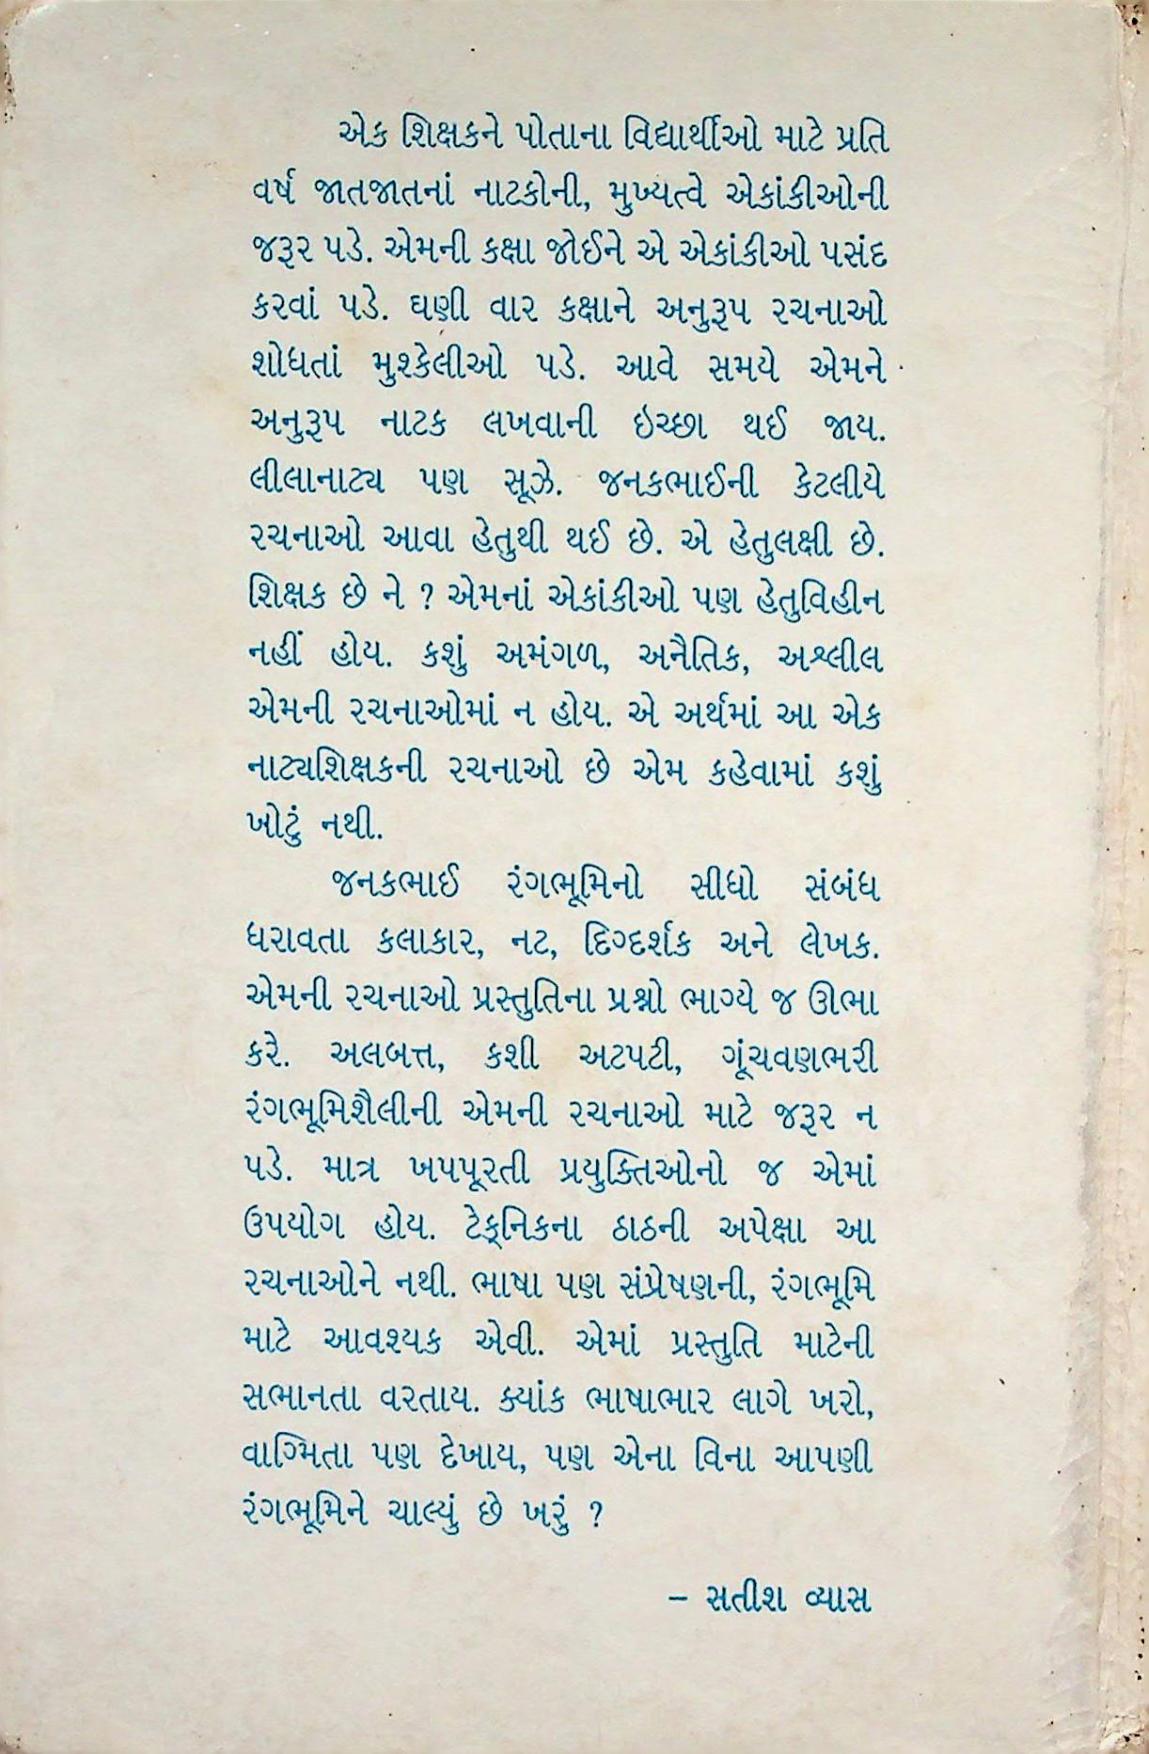 એક શિક્ષકને પોતાના વિદ્યાર્થીઓ માટે પ્રતિ
વર્ષ જાતજાતનાં નાટકોની, મુખ્યત્વે એકાંકીઓની
જરૂર પડે. એમની કક્ષા જોઈને એ એકાંકીઓ પસંદ
કરવાં પડે. ઘણી વાર કક્ષાને અનુરૂપ રચનાઓ
શોધતાં મુશ્કેલીઓ પડે. આવે સમયે એમને
અનુરૂપ નાટક લખવાની ઇચ્છા થઈ જાય.
લીલાનાટ્ય પણ સૂઝે. જનકભાઈની કેટલીયે
રચનાઓ આવા હેતુથી થઈ છે. એ હેતુલક્ષી છે.
શિક્ષક છે ને ? એમનાં એકાંકીઓ પણ હેતુવિહીન
નહીં હોય. કશું અમંગળ, અનૈતિક, અશ્લીલ
એમની રચનાઓમાં ન હોય. એ અર્થમાં આ એક
નાટ્યશિક્ષકની રચનાઓ છે એમ કહેવામાં કશું
ખોટું નથી.
જનકભાઈ રંગભૂમિનો સીધો સંબંધ
ધરાવતા કલાકાર, નટ, દિગ્દર્શક અને લેખક.
એમની રચનાઓ પ્રસ્તુતિના પ્રશ્નો ભાગ્યે જ ઊભા
કરે. અલબત્ત, કશી અટપટી, ગૂંચવણભરી
રંગભૂમિશૈલીની એમની રચનાઓ માટે જરૂર ન
પડે. માત્ર ખપપૂરતી પ્રયુક્તિઓનો જ એમાં
ઉપયોગ હોય. ટેક્‌નિકના ઠાઠની અપેક્ષા આ
રચનાઓને નથી. ભાષા પણ સંપ્રેષણની, રંગભૂમિ
માટે આવશ્યક એવી. એમાં પ્રસ્તુતિ માટેની
સભાનતા વરતાય. ક્યાંક ભાષાભાર લાગે ખરો,
વાગ્મિતા પણ દેખાય, પણ એના વિના આપણી
રંગભૂમિને ચાલ્યું છે ખરું ?
– સતીશ વ્યાસ